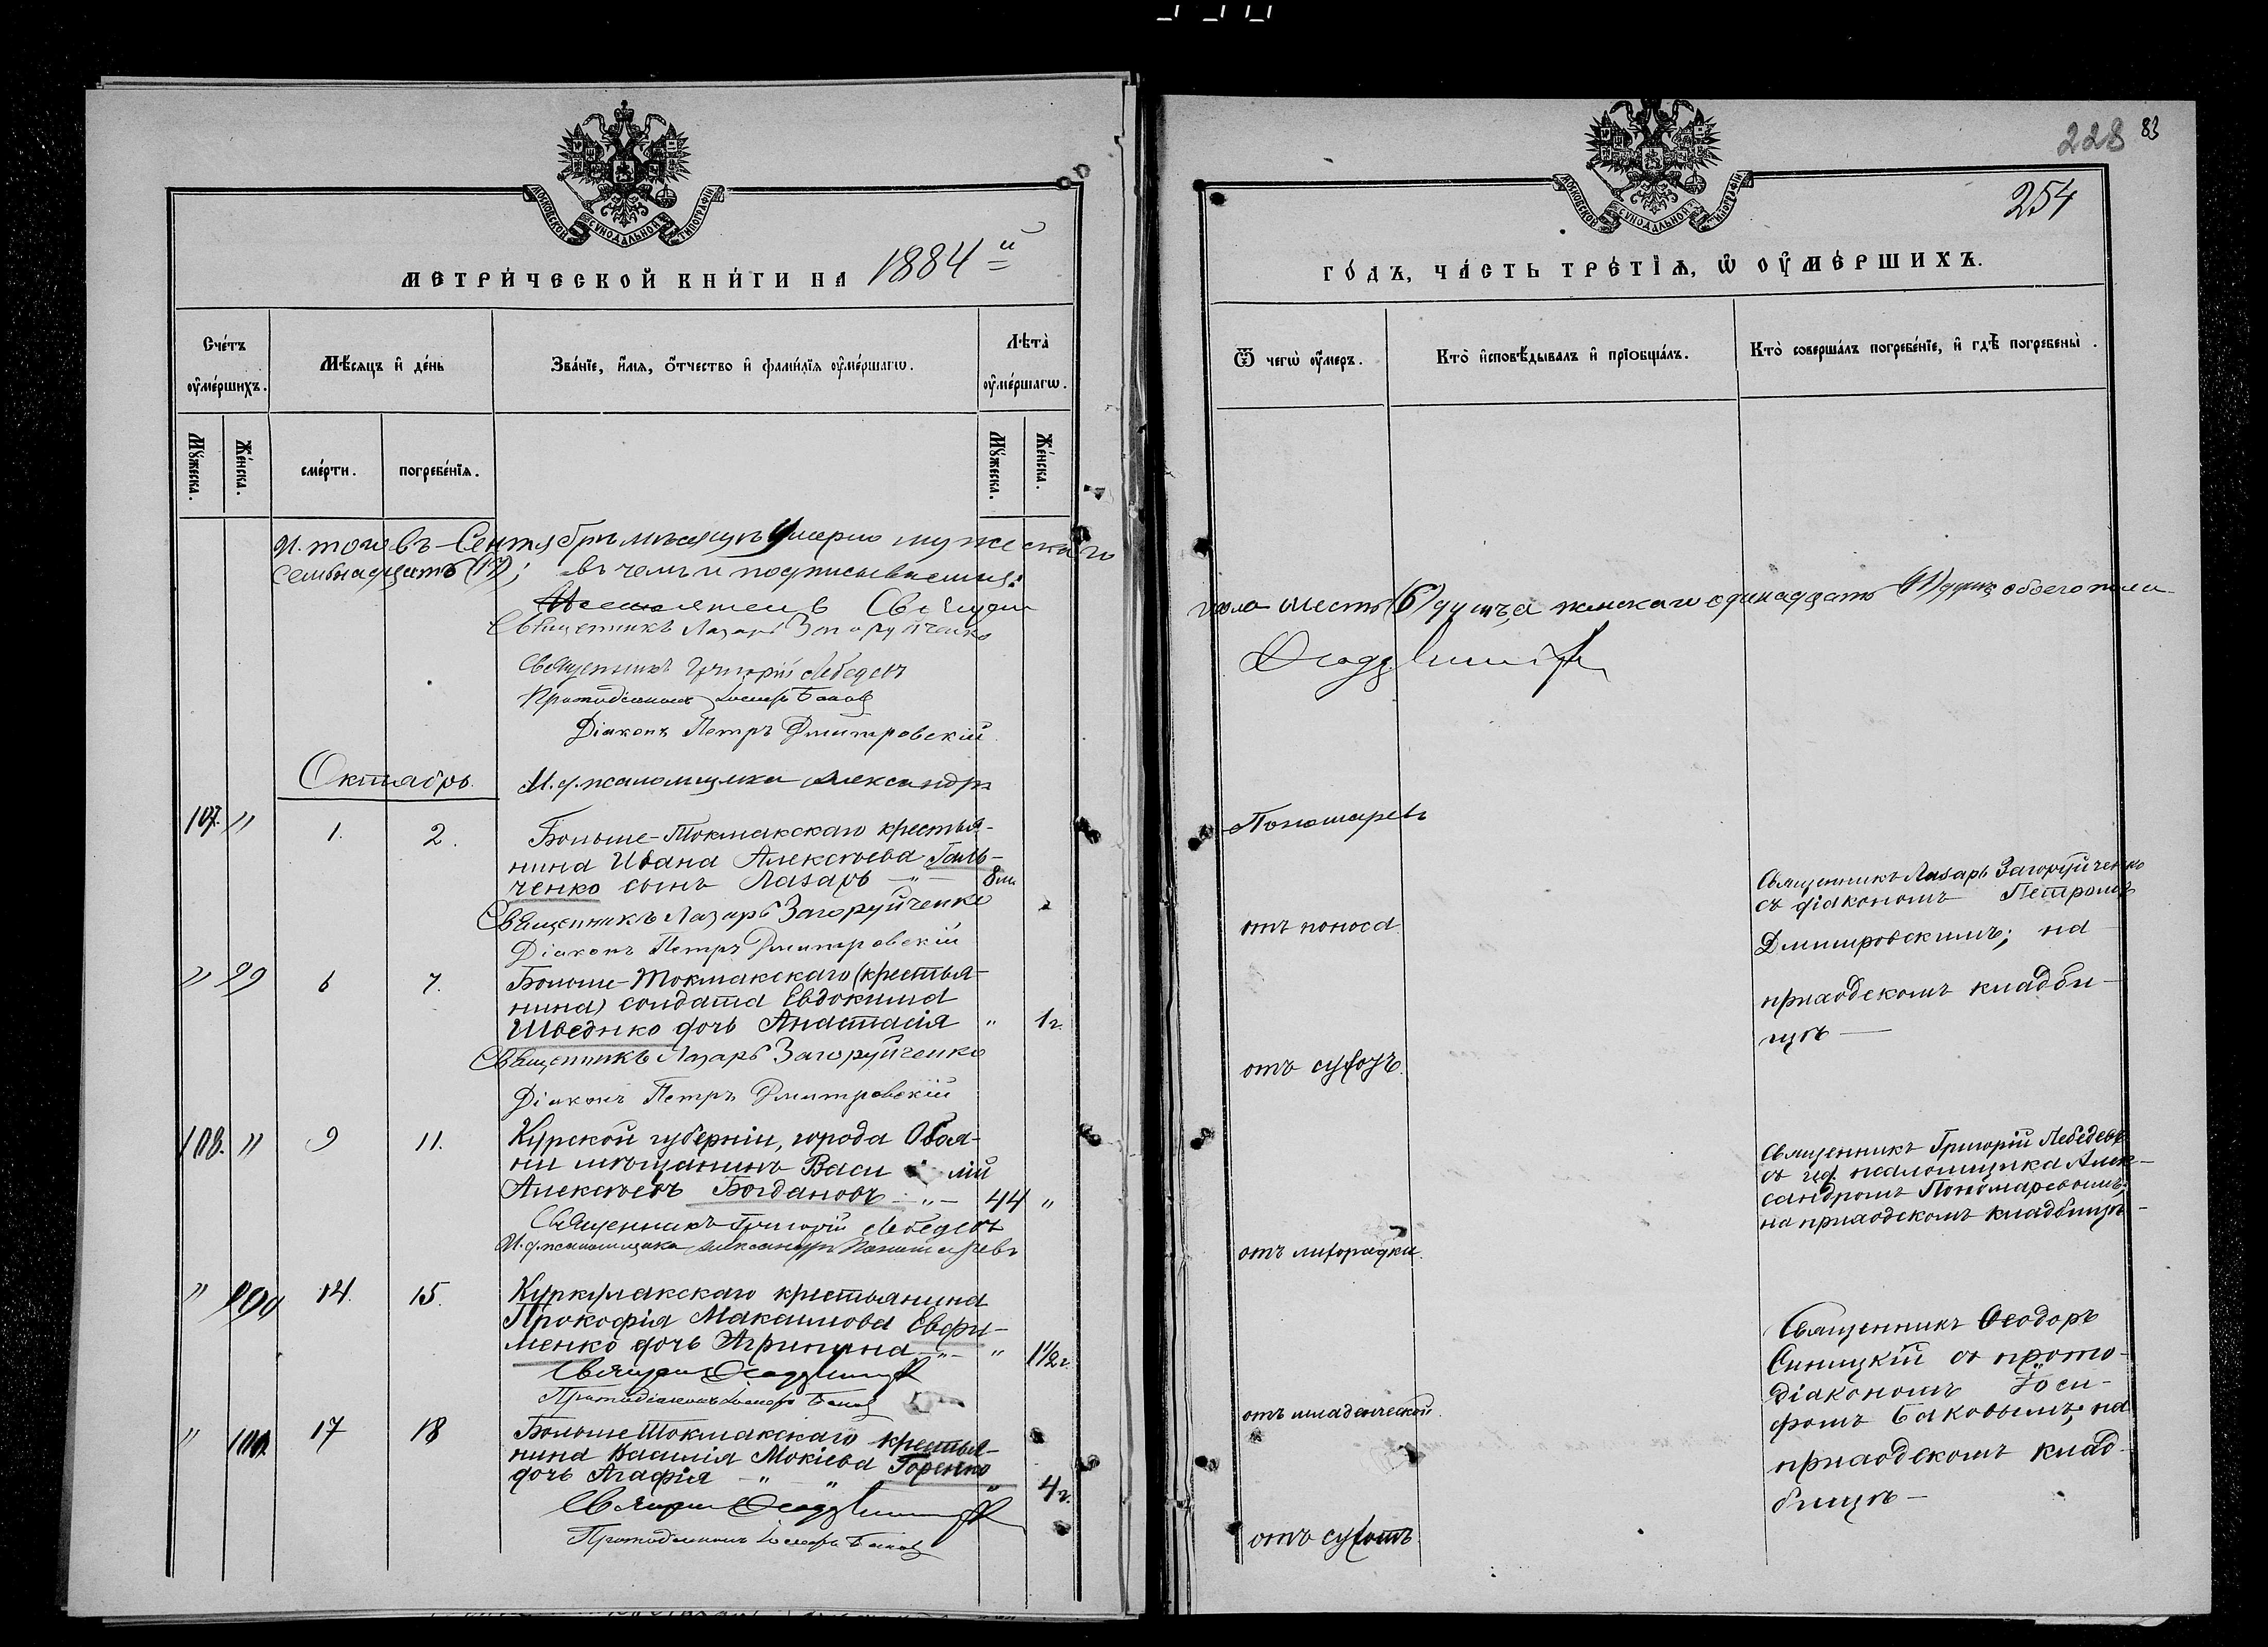 МОСКОВСКОЙ СУНОДАЛЬНОЙ ТИПОГРАФІИ
МЕТРИ́ЧЕСКОЙ КНИ́ГИ НА 1884 й
Сче́тъ оу҆ме́ршихъ.
Мѣ́сяцъ и҆ де́нь
Зва́нїе, и҆́мя, ѻ҆́тчество и҆ фами́лїя оу҆ме́ршагѡ.
Лѣта̀ оу҆ме́ршагѡ.
Мꙋ́жеска.
Же́нска.
сме́рти.
погребе́нїя.
Мꙋ́жеска.
Же́нска.
Итого въ Сентябрѣ мѣсяцѣ умерло мужескаго
семьнадцать (17); въ чемъ и подписываемся:
Священникъ Лазарь Загоруйченко
Священникъ Григорій Лебедевъ
Протодіаконъ Іосифъ Баковъ
Діаконъ Петръ Дмитровскій
Октябрь. И. д. псаломщика Александръ
107. " 1. 2. Больше-Токмакскаго крестья-
нина Ивана Алексѣева Галь-
ченко сынъ Лазарь " 8 м.
Священникъ Лазарь Загоруйченко
Діаконъ Петръ Дмитровскій
" 99 6 7. Больше-Токмакскаго (крестья-
нина) солдата Евдокима
Шведнко дочь Анастасія " 1 г.
Священникъ Лазарь Загоруйченко
Діаконъ Петръ Дмитровскій
108. " 9 11. Курской губерніи, города Обоя-
ни мѣщанинъ Васи лій
Алексѣевъ Богдановъ " 44 "
Священникъ Григорій Лебедевъ
И. д. псаломщика Александръ Пономаревъ
" 100 14. 15. Куркулакскаго крестьянина
Прокофія Макаимова Евфи-
менко дочь Агрипина " " 1½ г.
Протодіаконъ Іосифъ Баковъ
" 101. 17 18 Больше Токмакскаго крестья-
нина Василія Мокіева Горенко
дочь Агафія " " " 4 г.
Протодіаконъ Іосифъ Баковъ
228 83
254
МОСКОВСКОЙ СУНОДАЛЬНОЙ ТИПОГРАФІИ
ГО́ДЪ, ЧА́СТЬ ТРЕ́ТІѦ, Ѡ҆ ОУ҆МЕ́РШИХЪ.
Ѿ чегѡ̀ оу҆́меръ.
Кто̀ и҆сповѣ́дывалъ и҆ прїобща́лъ.
Кто̀ соверша́лъ погребе́нїе, и҆ гдѣ̀ погребены̀.
пола шесть (6) душъ, а женскаго одинадцать (11) душъ обоего пола
Пономаревъ
отъ поноса
Священникъ Лазарь Загоруйченко
съ діакономъ Петромъ
Дмитровскимъ; на
приходскомъ кладби-
щѣ —
отъ сухотъ.
отъ лихорадки.
Священникъ Григорій Лебедевъ
съ и. д. псаломщика Алек-
сандромъ Пономаревымъ;
на приходскомъ кладбищѣ —
отъ младенческой.
Священникъ Ѳеодоръ
Синицкій съ прото-
діакономъ Іоси-
фомъ Баковымъ; на
приходскомъ клад-
бищѣ —
отъ сухотъ.